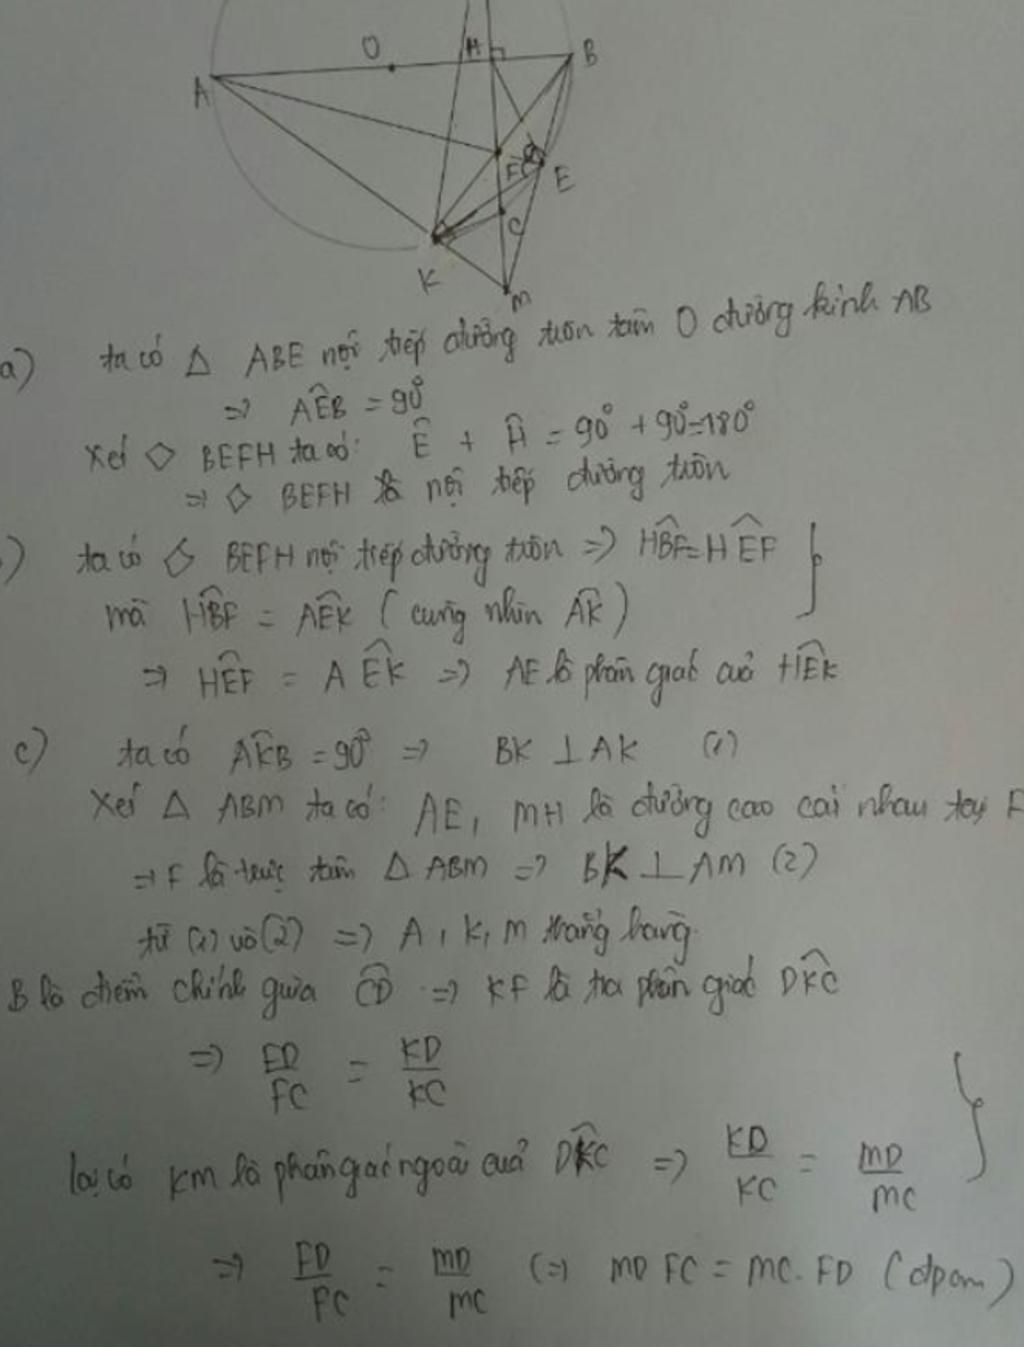 O H B
A
F E
C
K
M
a) ta có Δ ABE nội tiếp đường tròn tâm O đường kính AB
=> AÊB = 90°
Xét ◇ BEFH ta có: Ê + Ĥ = 90° + 90° = 180°
=> ◇ BEFH là nội tiếp đường tròn
) ta có ◇ BEFH nội tiếp đường tròn => HB̂F = HÊF
mà HB̂F = AÊK ( cùng nhìn AK )
=> HÊF = AÊK => AE là phân giác của HÊK
c) ta có AK̂B = 90° => BK ⊥ AK (1)
Xét Δ ABM ta có: AE, MH là đường cao cắt nhau tại F
=> F là trực tâm Δ ABM => BK ⊥ AM (2)
từ (1) và (2) => A, K, M thẳng hàng.
B là điểm chính giữa CD => KF là tia phân giác DK̂C
=> FD/FC = KD/KC
lại có KM là phân giác ngoài của DK̂C => KD/KC = MD/MC
=> FD/FC = MD/MC (=) MD FC = MC. FD (đpcm)